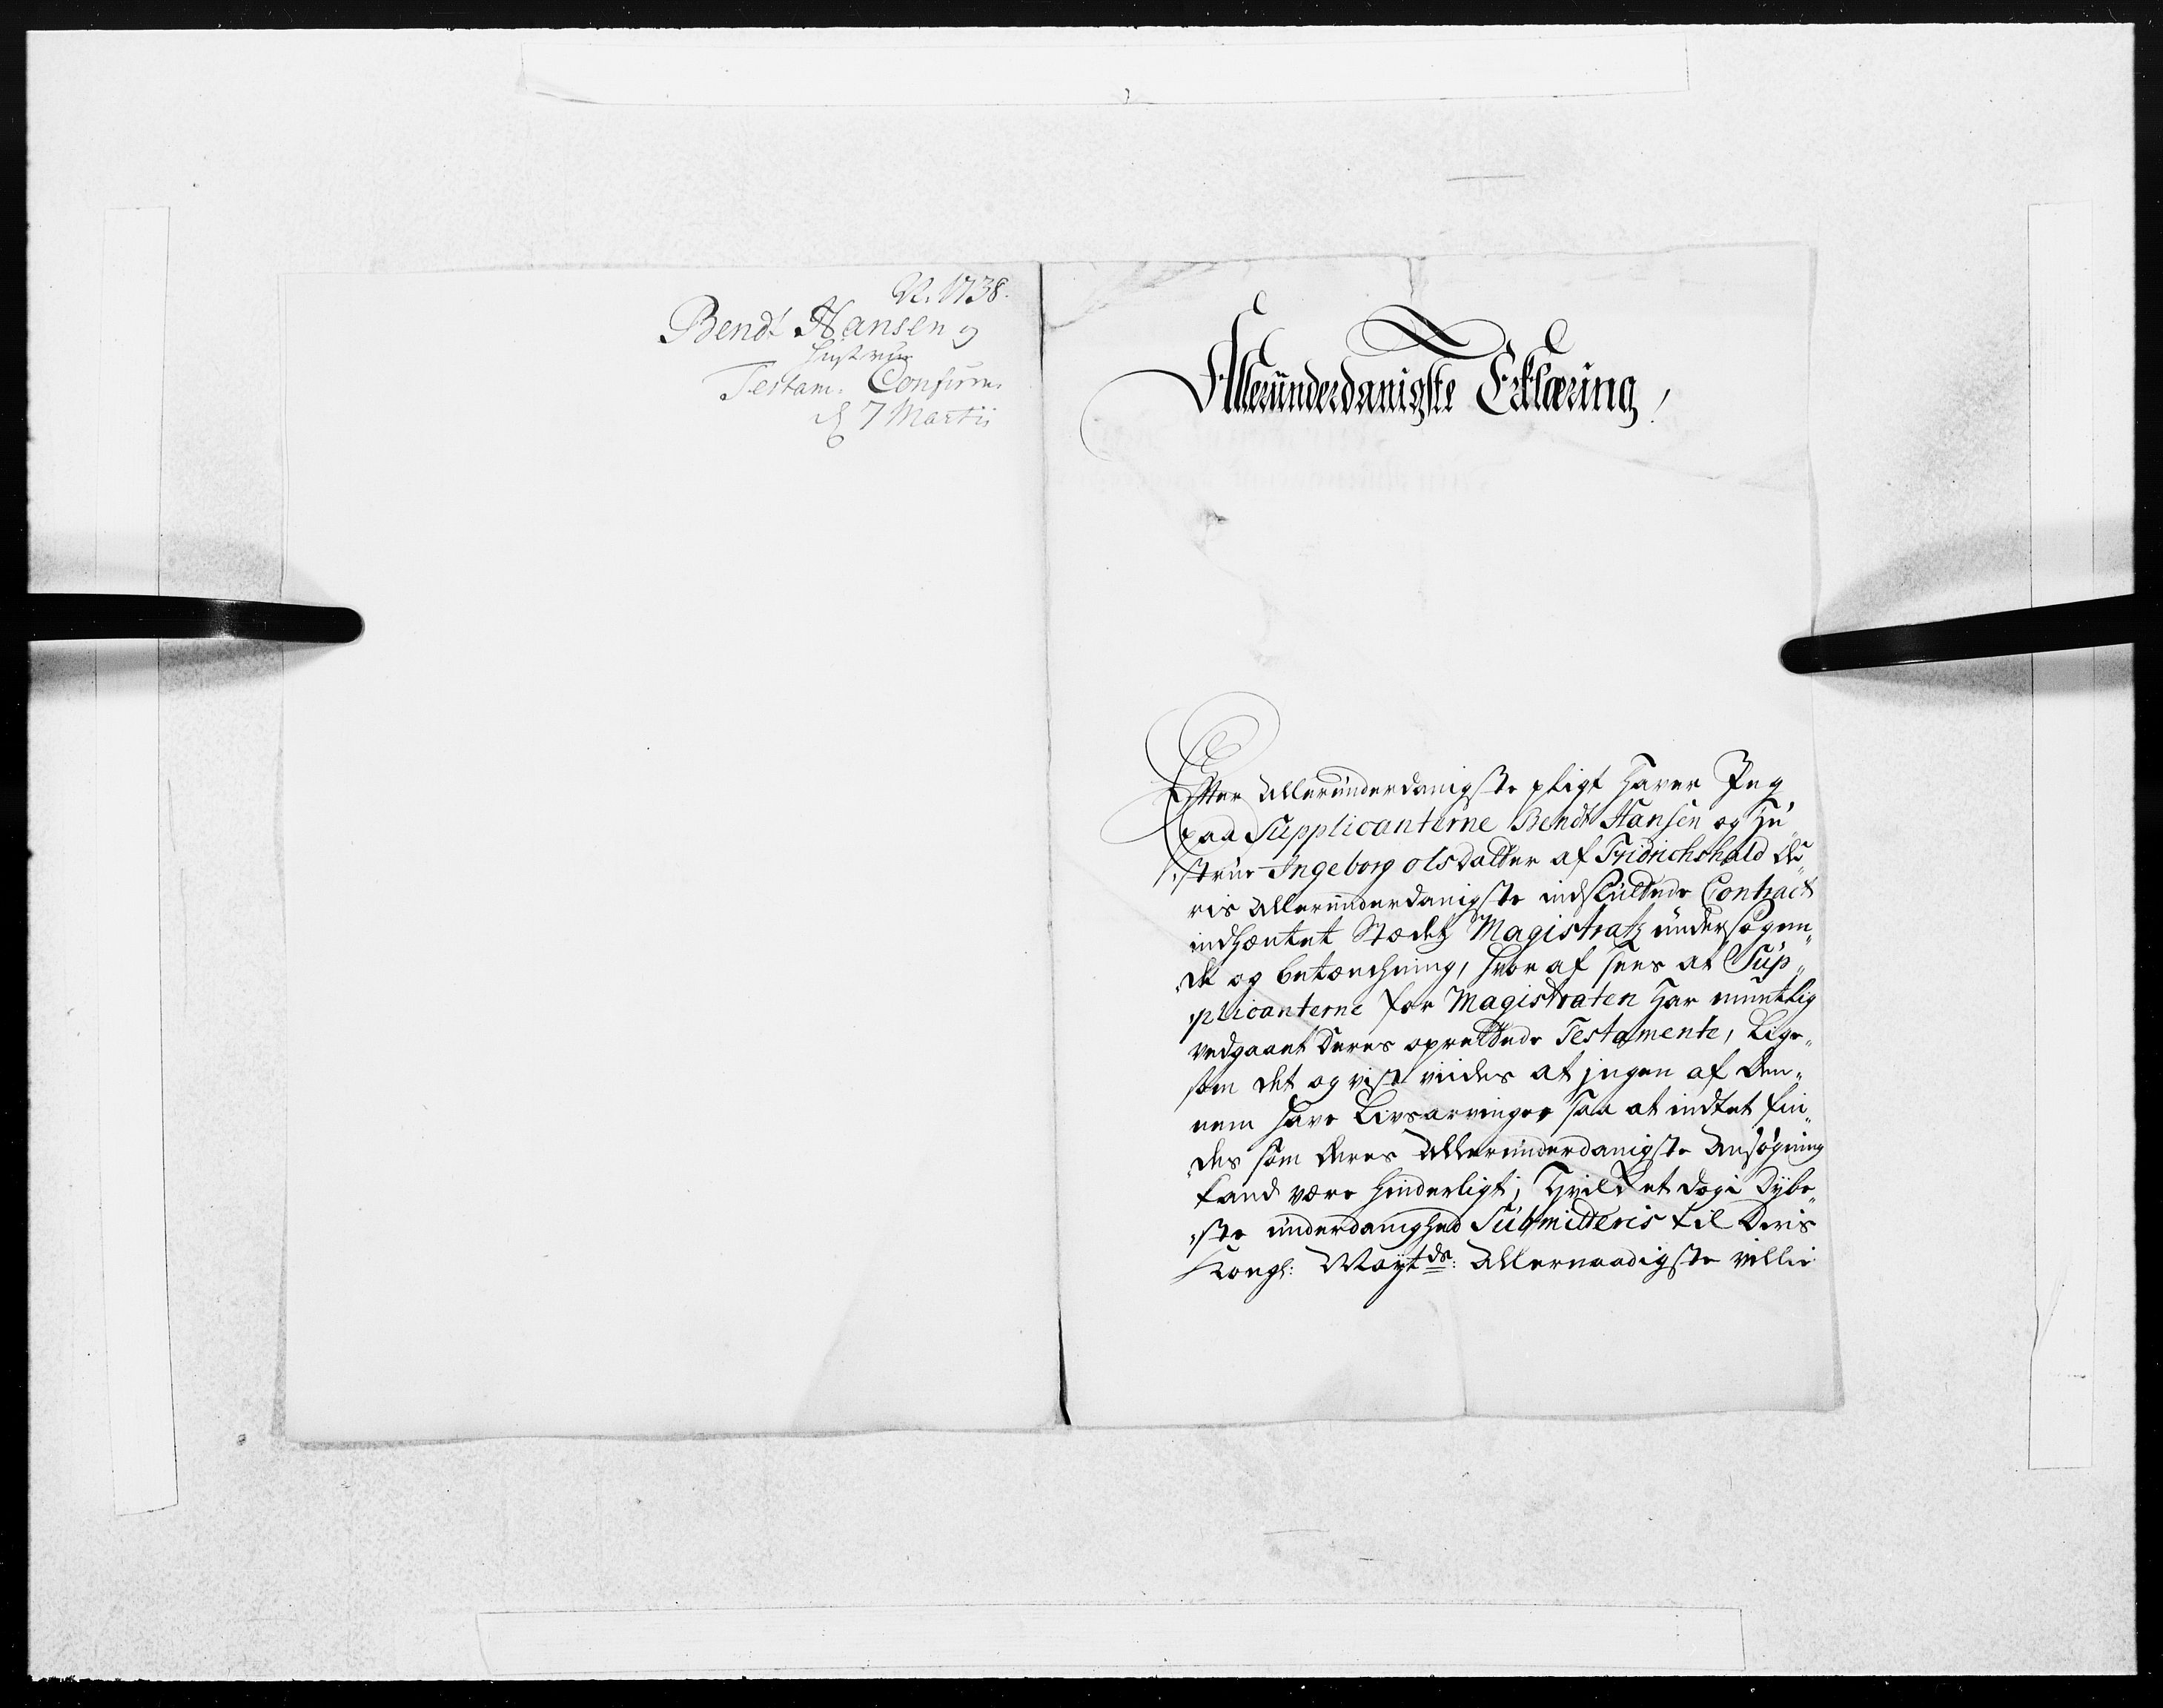 N. 1738.
Bendt Hansen og
Hustrue
Testam. Confirm.
d 7 Martii
Allerunderdanigste Erklæring!
Efter Allerunderdanigste pligt haver Jeg
paa Supplicanterne Bendt Hansen og Hu„
„strue Ingeborg olsdatter af Fridrichshald de„
ris Allerunderdanigste indskikkede Contract
indhæntet Stædetz Magistratz undersøgen„
„de og betænchning, hvor af sees at Sup„
„plicanterne for Magistraten har mundtlig
vedgaaet deres oprettede Testamente, Lige„
som det og vist viides at jngen af den„
nem have Livsarvinger saa at indtet fin„
„des som deres Allerunderdanigste Ansøgning
kand være hinderligt; Hvilket dog i dÿbe„
„ste underdanighed Submitteris til Deris
Kongl: Maÿtds: Allernaadigste villie